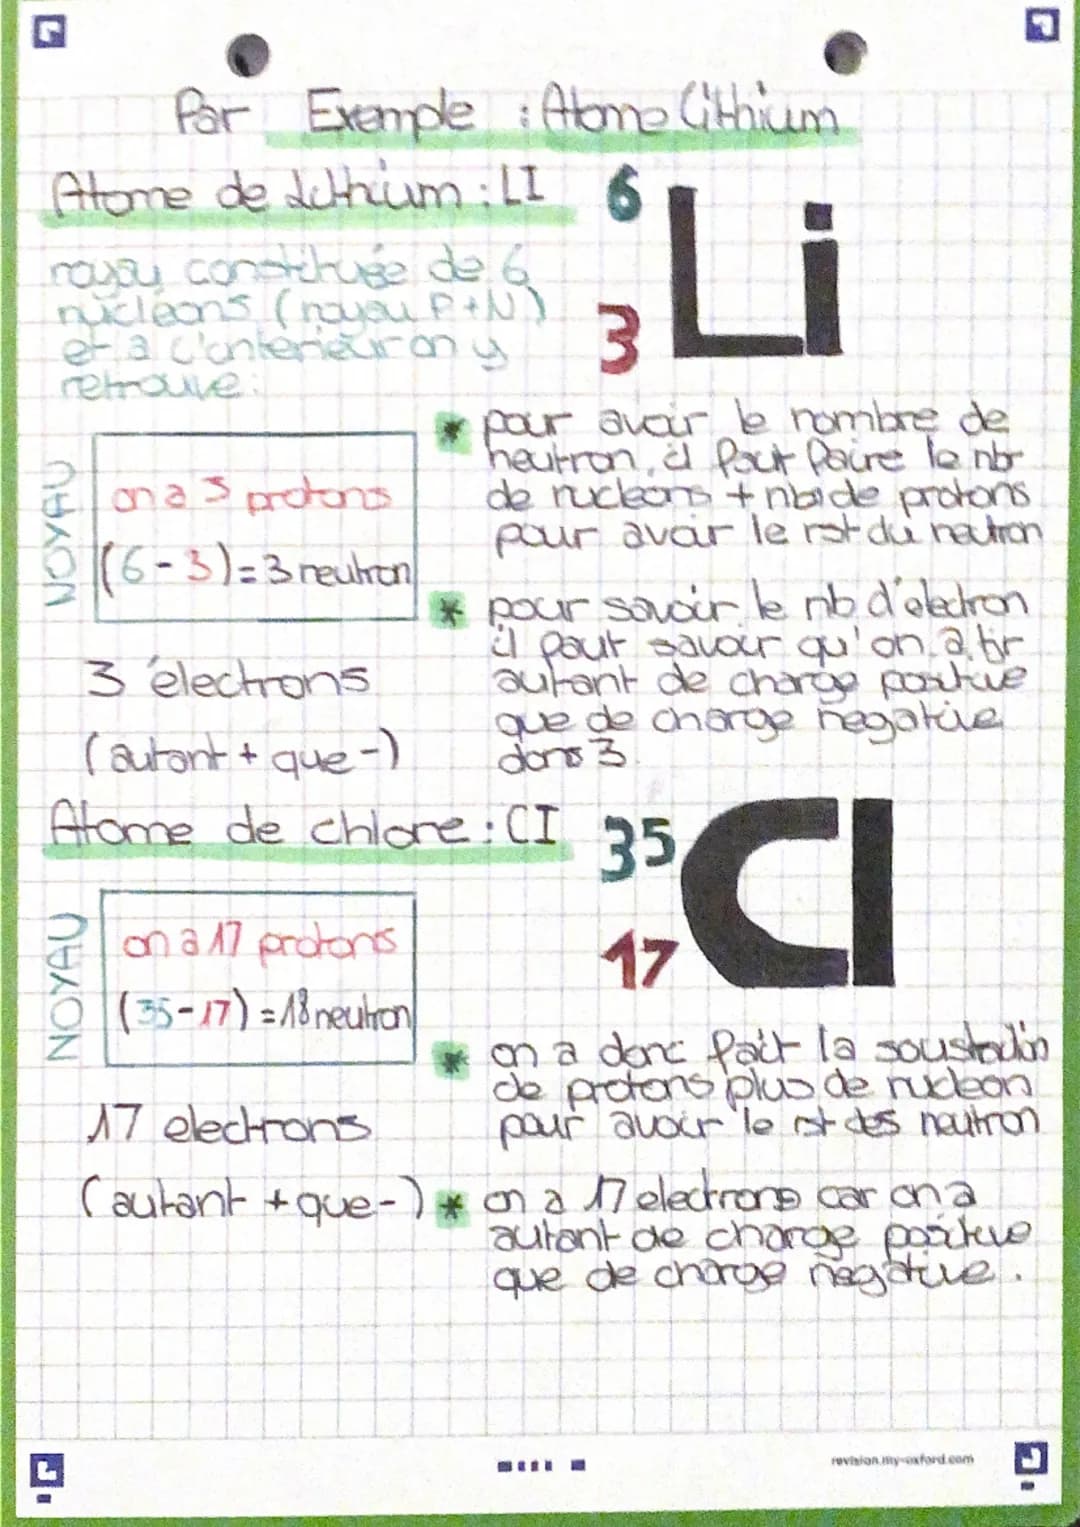 Par Exemple : Atome Lithium
Atome de Lithium : LI
6
Li
3
noyau constituée de 6
nucléons (noyau P+N)
et a l'interieur on y
retrouve :
NOYAU
on a 3 protons
(6-3)=3 neutron
3 électrons
(autant + que -)
* pour avoir le nombre de
neutron, il faut faire le nbr
de nucleons + nb de protons
pour avoir le rst du neutron
* pour savoir le nb d'electron
il faut savoir qu'on a
autant de charge positive
que de charge negative
donc 3
Atome de chlore : CI
35
Cl
17
NOYAU
on a 17 protons
(35-17) = 18 neutron
17 electrons
(autant + que -)
* on a donc fait la
de protons plus de nucleon
pour avoir le rst des neutron
* on a 17 electrons car on a
autant de charge positive
que de charge negative.
revision.my-oxford.com